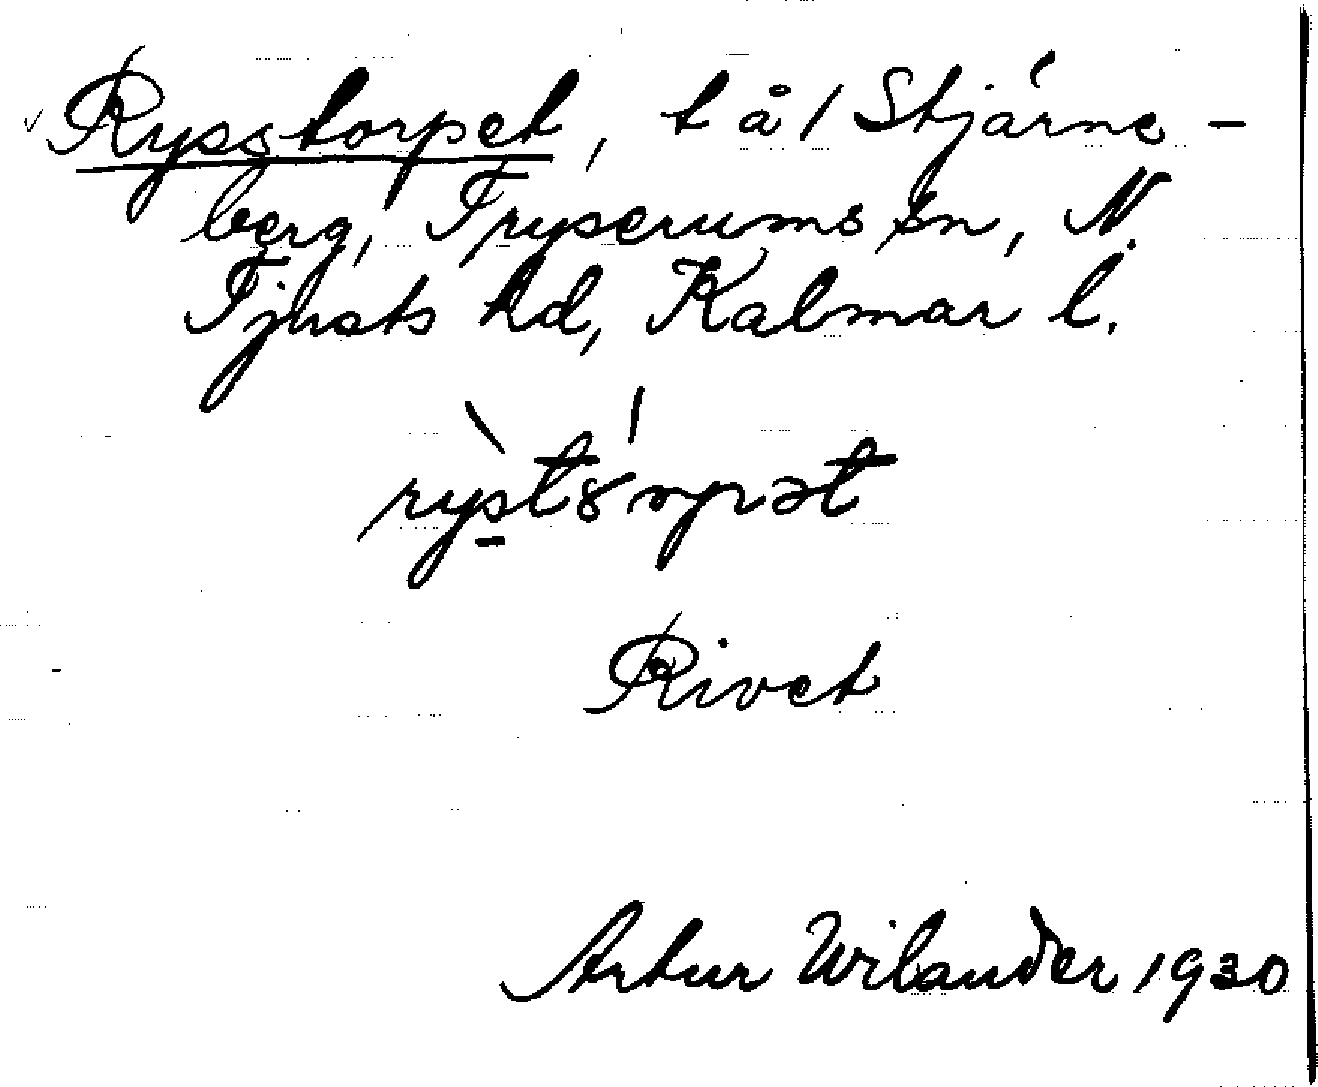 Rysstorpet, t å 1 Stjärne-
berg, Tryserums sn, N.
Tjusts hd, Kalmar l.
rỳst8́rpət
Rivet
Artur Wilander 1930